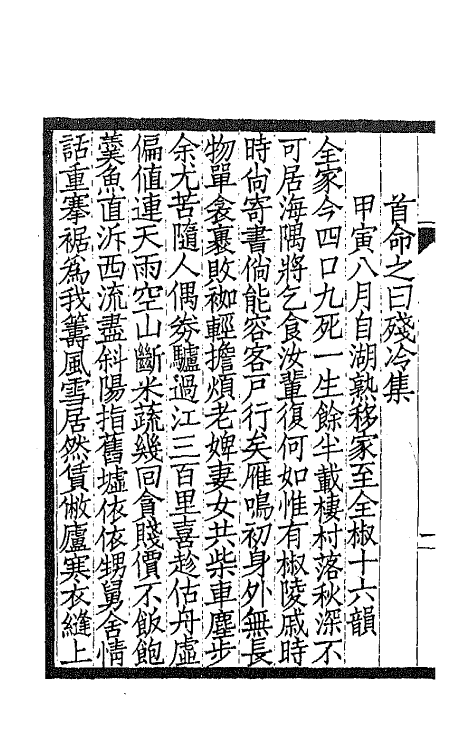 首命之曰殘冷集
甲寅八月自湖熟移家至全椒十六韻
全家今四口九死一生餘半載棲村落秋深不
可居海隅將乞食汝輩復何如惟有椒陵戚時
時尙寄書倘能容客戸行矣雁鳴初身外無長
物單衾裹敗袽輕擔煩老婢妻女共柴車塵步
余尤苦隨人偶劵驢過江三百里喜趁估舟虛
偏值連天雨空山斷米蔬幾回貪賤價不飯飽
羹魚直泝西流盡斜陽指舊墟依依甥舅舍情
話重搴裾爲我籌風雪居然僨敝廬寒衣縫上
二